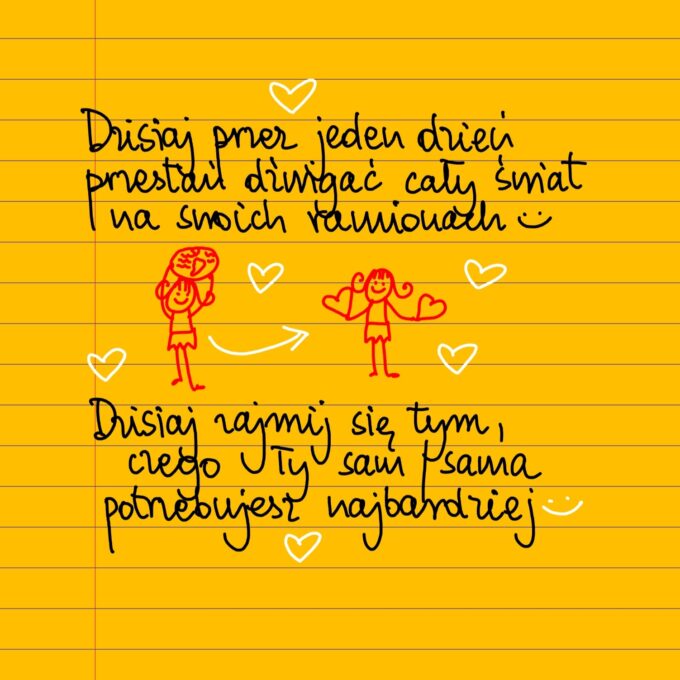 Dzisiaj przez jeden dzień
przestań dźwigać cały świat
na swoich ramionach :)
Dzisiaj zajmij się tym,
czego Ty sam/sama
potrzebujesz najbardziej :)